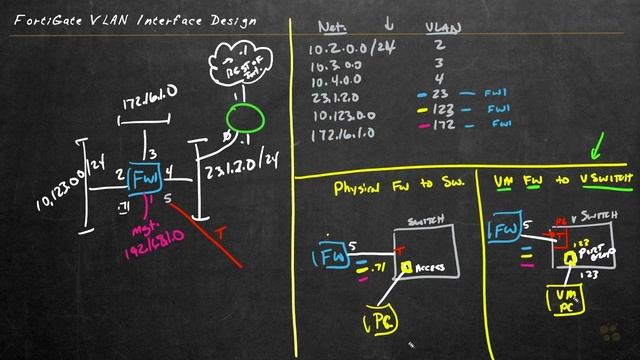 FortiGate VLAN Interface Design
Net.
VLAN
10.2.0.0/24
2
10.3.0.0
3
10.4.0.0
4
23.1.2.0
23 – FW1
10.123.0.0
123 – FW1
172.16.1.0
172 – FW1
.1
REST OF
Int.
172.16.1.0
.1
10.123.0.0/24
2
3
4
5
FW1
1
.71
23.1.2.0/24
Mgt.
192.168.1.0
T
Physical FW to SW.
FW
5
SWITCH
T
.71
ACCESS
PC
VM FW to VSWITCH
FW
5
PG
T
V SWITCH
123
Port
Group
123
VM
PC